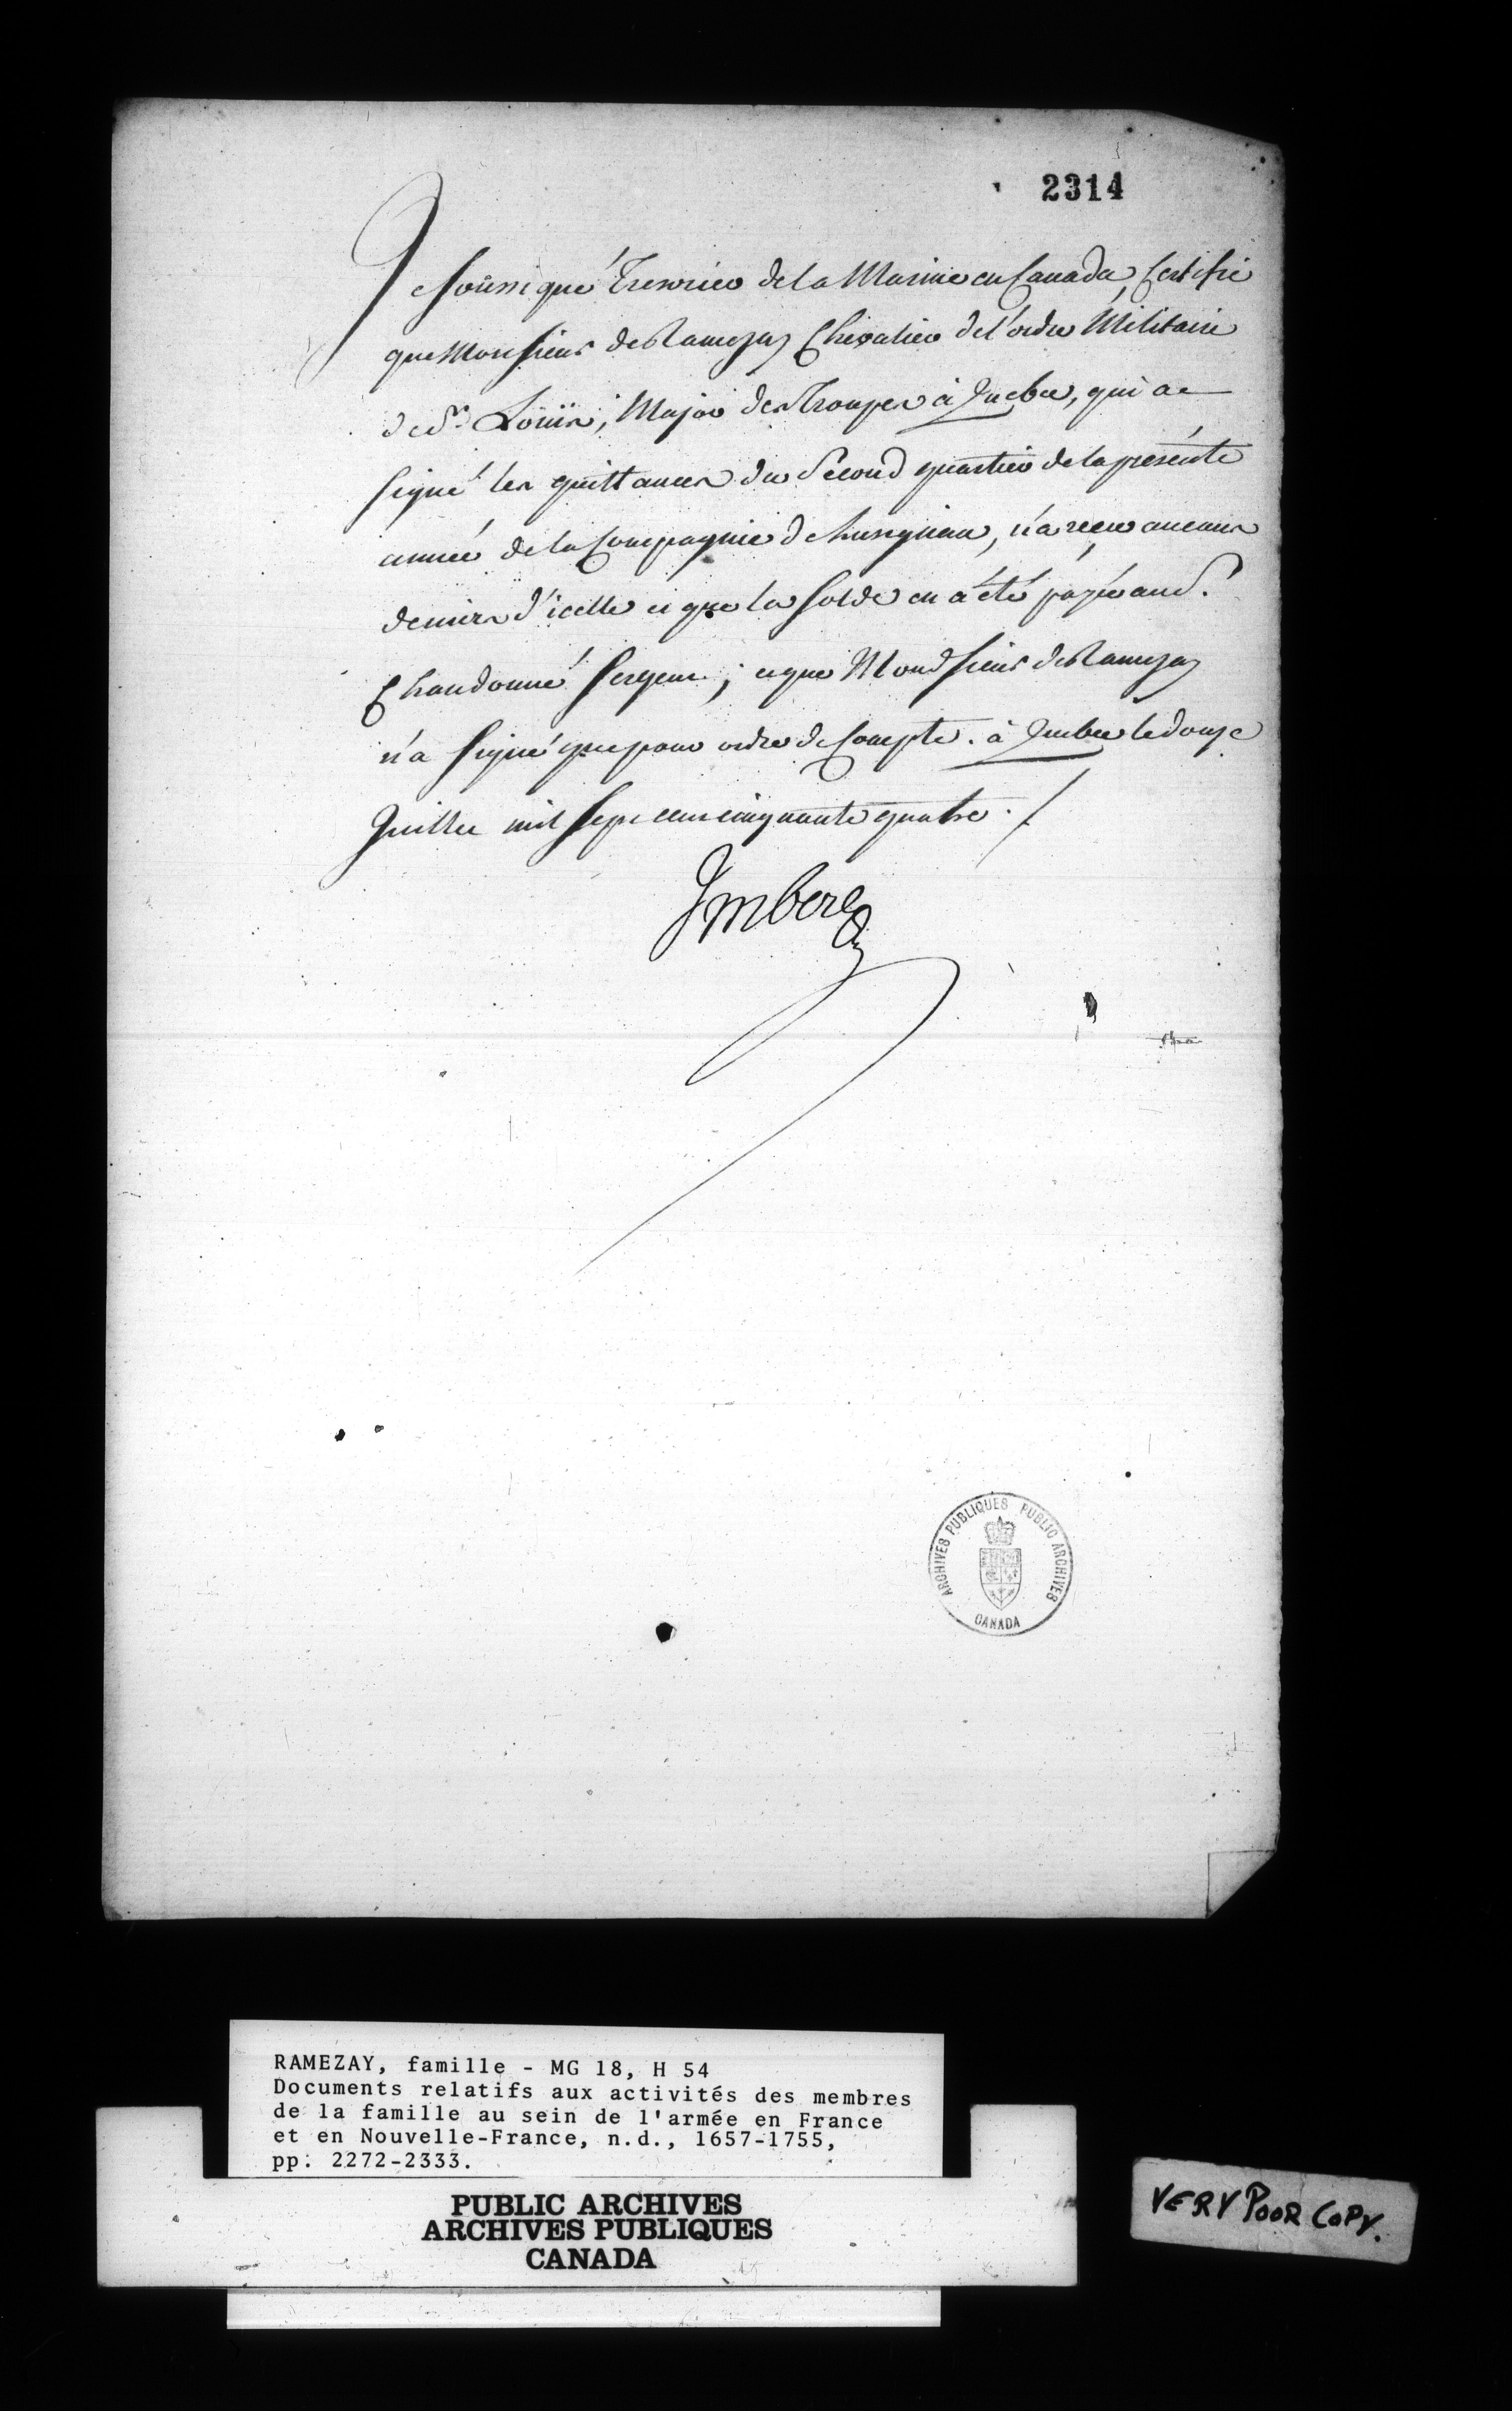 2314
Je soussigné Tresorier de la Marine en Canada, Certifie
que Monsieur de Ramezay Chevalier de l'ordre Militaire
de St. Loüis, Major des Troupes à Quebec, qui a
signé les quittances du Second quartier de la présente
année de la Compagnie de , n'a reçu aucuns
deniers d'icelle et que la solde en a été payée au S.
Chandonné sergent; et que Mond sieur de Ramezay
n'a signé que pour ordre de Compte. à Quebec le douze
Juillet mil sept cent cinquante quatre ./.
Imbert
ARCHIVES PUBLIQUES PUBLIC ARCHIVES
CANADA
RAMEZAY, famille - MG 18, H 54
Documents relatifs aux activités des membres
de la famille au sein de l'armée en France
et en Nouvelle-France, n.d., 1657-1755,
pp. 2272-2333.
PUBLIC ARCHIVES
ARCHIVES PUBLIQUES
CANADA
VERY POOR COPY.